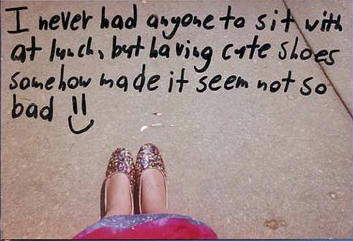 I never had anyone to sit with
at lunch, but having cute shoes
somehow made it seem not so
bad !!